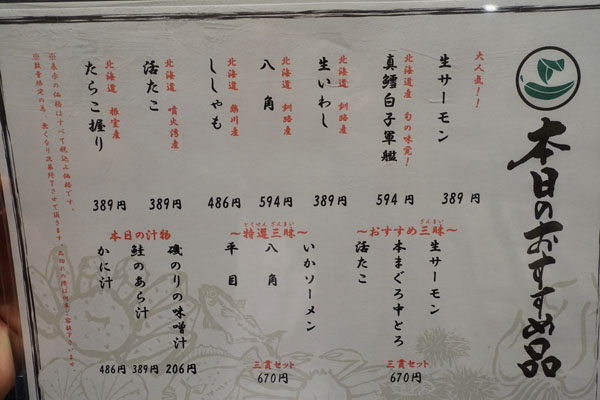 本日のおすすめ品
大人気!!
生サーモン
389円
北海道 旬の味覚!
真鱈白子軍艦
594円
北海道 釧路産
生いわし
389円
北海道 釧路産
八角
594円
北海道 鵡川産
ししゃも
486円
北海道 噴火湾産
活たこ
389円
北海道 根室産
たらこ握り
389円
～おすすめ三昧～
ざんまい
生サーモン
本まぐろ中とろ
活たこ
三貫セット
670円
～特選三昧～
とくせんざんまい
いかソーメン
八角
平目
三貫セット
670円
本日の汁物
磯のりの味噌汁
206円
鮭のあら汁
389円
かに汁
486円
※表示の価格はすべて税込み価格です。